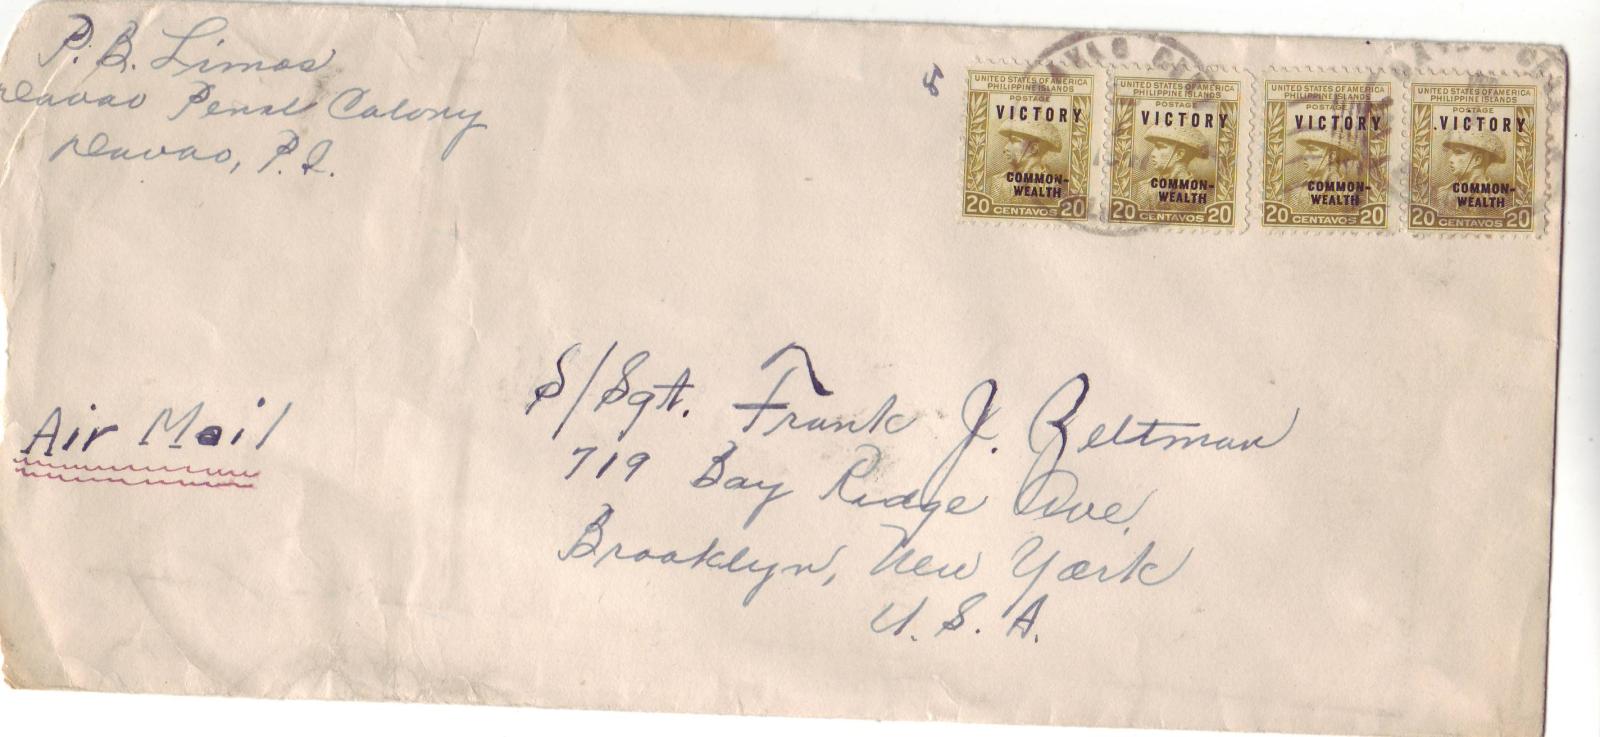 P. B. Limos
Davao Penal Colony
Davao, P. I.
UNITED STATES OF AMERICA
PHILIPPINE ISLANDS
POSTAGE
VICTORY
COMMON-
WEALTH
20 CENTAVOS 20
UNITED STATES OF AMERICA
PHILIPPINE ISLANDS
POSTAGE
VICTORY
COMMON-
WEALTH
20 CENTAVOS 20
UNITED STATES OF AMERICA
PHILIPPINE ISLANDS
POSTAGE
VICTORY
COMMON-
WEALTH
20 CENTAVOS 20
UNITED STATES OF AMERICA
PHILIPPINE ISLANDS
POSTAGE
VICTORY
COMMON-
WEALTH
20 CENTAVOS 20
Air Mail
S/Sgt. Frank J. Zeltman
719 Bay Ridge Ave.
Brooklyn, New York
U. S. A.